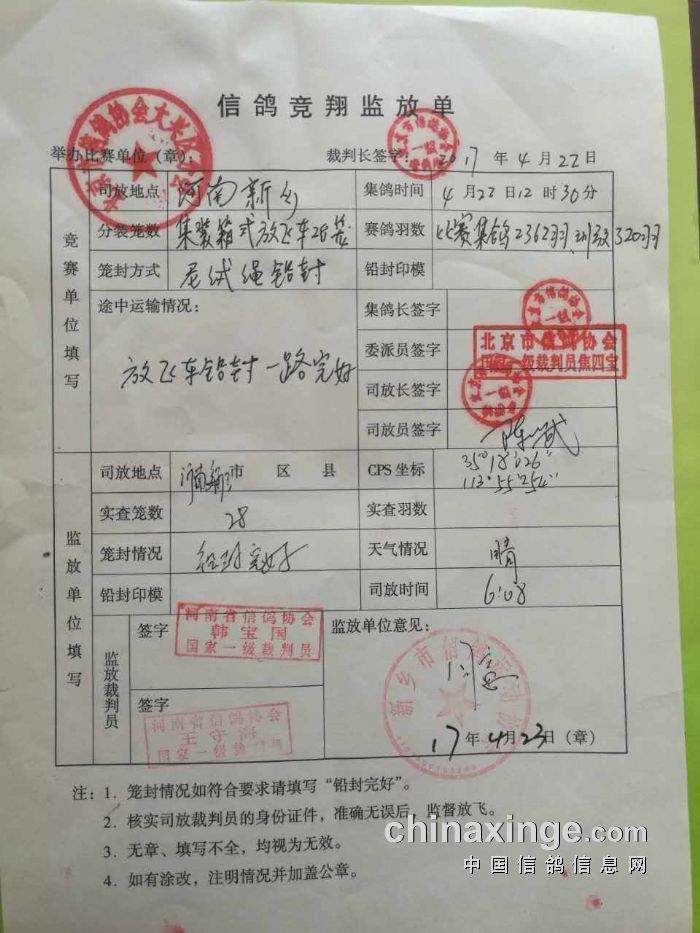 信鸽竞翔监放单
举办比赛单位（章）： 裁判长签字： 2017 年 4 月 22 日
竞赛单位填写
司放地点 河南新乡 集鸽时间 4 月 22 日 12 时 30 分
分装笼数 集装箱式放飞车28笼 赛鸽羽数 比赛集鸽2362羽, 训放320羽
笼封方式 尼绒绳铅封 铅封印模
途中运输情况： 集鸽长签字
放飞车铅封一路完好
委派员签字 北京市信鸽协会
国家一级裁判员焦四宝
司放长签字
司放员签字
监放单位填写
司放地点 河南新乡 市 区 县 GPS 坐标 35°18′026″
113°55′254″
实查笼数 28 实查羽数
笼封情况 铅封完好 天气情况 晴
铅封印模 司放时间 6:08
监放裁判员
签字 河南省信鸽协会
韩宝国
国家一级裁判员
签字 河南省信鸽协会
王守海
国家一级裁判员
监放单位意见：
同意
新乡市信鸽运动协会
17 年 4 月 23 日（章）
注：1. 笼封情况如符合要求请填写“铅封完好”。
2. 核实司放裁判员的身份证件，准确无误后，监督放飞。
3. 无章、填写不全，均视为无效。
4. 如有涂改，注明情况并加盖公章。
chinaxinge.com
中国信鸽信息网